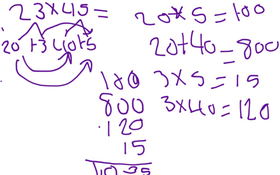 23×45=
20+3 40+5
20×5=100
20+40=800
3×5=15
3×40=120
100
800
120
15
1035